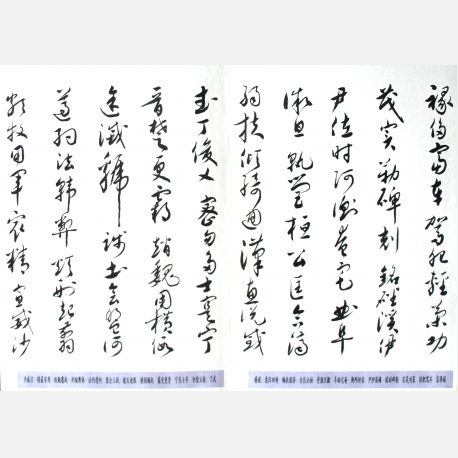 祿侈富車駕肥輕策功
茂實勒碑刻銘磻溪伊
尹佐时阿衡奄宅曲阜
微旦孰營桓公匡合濟
弱扶傾綺迴漢惠說感
武丁俊乂密勿多士寔宁
晉楚更霸趙魏困橫假
途滅虢踐土會盟何
遵約法韓弊煩刑起翦
頗牧用軍最精宣威沙